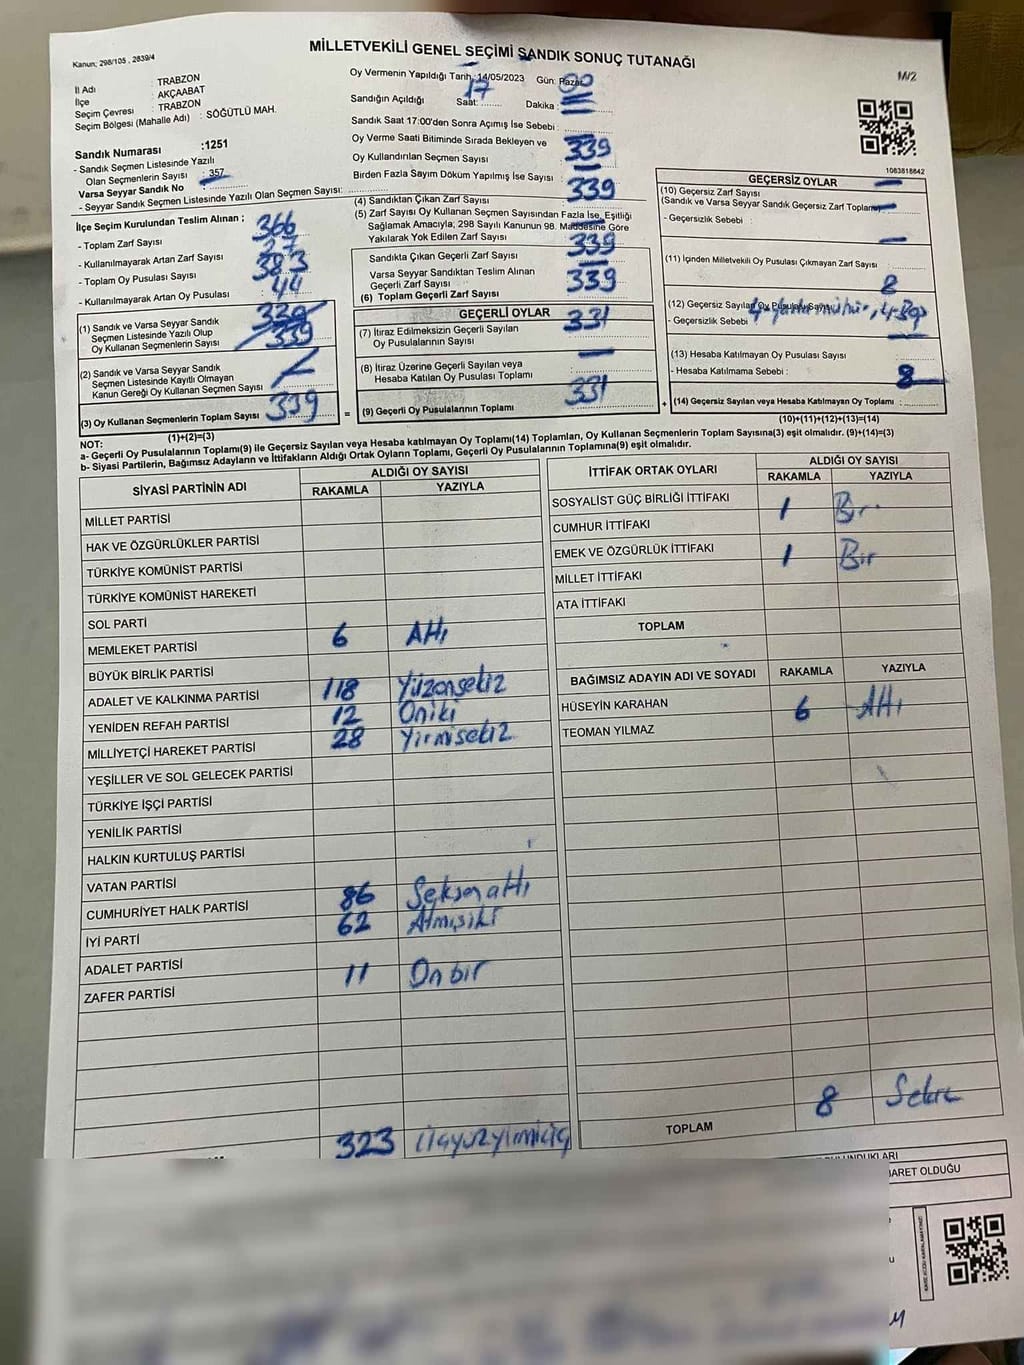 MİLLETVEKİLİ GENEL SEÇİMİ SANDIK SONUÇ TUTANAĞI
Kanun; 298/105 , 2839/4
M/2
İl Adı : TRABZON
İlçe : AKÇAABAT
Seçim Çevresi : TRABZON
Seçim Bölgesi (Mahalle Adı) : SÖĞÜTLÜ MAH.
Sandık Numarası :1251
- Sandık Seçmen Listesinde Yazılı
Olan Seçmenlerin Sayısı : 357
Varsa Seyyar Sandık No :
- Seyyar Sandık Seçmen Listesinde Yazılı Olan Seçmen Sayısı:
Oy Vermenin Yapıldığı Tarih: 14/05/2023 Gün: Pazar
Sandığın Açıldığı Saat: 17 Dakika : 00
Sandık Saat 17:00'den Sonra Açımış İse Sebebi :
Oy Verme Saati Bitiminde Sırada Bekleyen ve
Oy Kullandırılan Seçmen Sayısı : 339
Birden Fazla Sayım Döküm Yapılmış İse Sayısı :
1083818642
İlçe Seçim Kurulundan Teslim Alınan ;
- Toplam Zarf Sayısı : 366
- Kullanılmayarak Artan Zarf Sayısı : 27
- Toplam Oy Pusulası Sayısı : 383
- Kullanılmayarak Artan Oy Pusulası : 44
(1) Sandık ve Varsa Seyyar Sandık
Seçmen Listesinde Yazılı Olup
Oy Kullanan Seçmenlerin Sayısı 339 339
(2) Sandık ve Varsa Seyyar Sandık
Seçmen Listesinde Kayıtlı Olmayan
Kanun Gereği Oy Kullanan Seçmen Sayısı
(3) Oy Kullanan Seçmenlerin Toplam Sayısı 339 =
(1)+(2)=(3)
(4) Sandıktan Çıkan Zarf Sayısı 339
(5) Zarf Sayısı Oy Kullanan Seçmen Sayısından Fazla İse, Eşitliği
Sağlamak Amacıyla, 298 Sayılı Kanunun 98. Maddesine Göre
Yakılarak Yok Edilen Zarf Sayısı
Sandıkta Çıkan Geçerli Zarf Sayısı 339
Varsa Seyyar Sandıktan Teslim Alınan
Geçerli Zarf Sayısı
(6) Toplam Geçerli Zarf Sayısı 339
GEÇERLİ OYLAR
(7) İtiraz Edilmeksizin Geçerli Sayılan
Oy Pusulalarının Sayısı 331
(8) İtiraz Üzerine Geçerli Sayılan veya
Hesaba Katılan Oy Pusulası Toplamı
(9) Geçerli Oy Pusulalarının Toplamı 331 +
GEÇERSİZ OYLAR
(10) Geçersiz Zarf Sayısı
(Sandık ve Varsa Seyyar Sandık Geçersiz Zarf Toplamı)
- Geçersizlik Sebebi :
(11) İçinden Milletvekili Oy Pusulası Çıkmayan Zarf Sayısı
(12) Geçersiz Sayılan Oy Pusulası Sayısı 8
- Geçersizlik Sebebi
(13) Hesaba Katılmayan Oy Pusulası Sayısı
- Hesaba Katılmama Sebebi :
(14) Geçersiz Sayılan veya Hesaba Katılmayan Oy Toplamı : 8
(10)+(11)+(12)+(13)=(14)
NOT:
a- Geçerli Oy Pusulalarının Toplamı(9) ile Geçersiz Sayılan veya Hesaba katılmayan Oy Toplamı(14) Toplamları, Oy Kullanan Seçmenlerin Toplam Sayısına(3) eşit olmalıdır. (9)+(14)=(3)
b- Siyasi Partilerin, Bağımsız Adayların ve İttifakların Aldığı Ortak Oyların Toplamı, Geçerli Oy Pusulalarının Toplamına(9) eşit olmalıdır.
SİYASİ PARTİNİN ADI ALDIĞI OY SAYISI
RAKAMLA YAZIYLA
MİLLET PARTİSİ
HAK VE ÖZGÜRLÜKLER PARTİSİ
TÜRKİYE KOMÜNİST PARTİSİ
TÜRKİYE KOMÜNİST HAREKETİ
SOL PARTİ
MEMLEKET PARTİSİ 6 Altı
BÜYÜK BİRLİK PARTİSİ
ADALET VE KALKINMA PARTİSİ 118 Yüzonsekiz
YENİDEN REFAH PARTİSİ 12 Oniki
MİLLİYETÇİ HAREKET PARTİSİ 28 Yirmisekiz
YEŞİLLER VE SOL GELECEK PARTİSİ
TÜRKİYE İŞÇİ PARTİSİ
YENİLİK PARTİSİ
HALKIN KURTULUŞ PARTİSİ
VATAN PARTİSİ
CUMHURİYET HALK PARTİSİ 86 Seksenaltı
İYİ PARTİ 62 Atmışiki
ADALET PARTİSİ
ZAFER PARTİSİ 11 Onbir
323
İTTİFAK ORTAK OYLARI ALDIĞI OY SAYISI
RAKAMLA YAZIYLA
SOSYALİST GÜÇ BİRLİĞİ İTTİFAKI
CUMHUR İTTİFAKI 1 Bir
EMEK VE ÖZGÜRLÜK İTTİFAKI
MİLLET İTTİFAKI 1 Bir
ATA İTTİFAKI
TOPLAM
BAĞIMSIZ ADAYIN ADI VE SOYADI RAKAMLA YAZIYLA
HÜSEYİN KARAHAN
TEOMAN YILMAZ 6 Altı
TOPLAM 8 Sekiz
ARET OLDUĞU